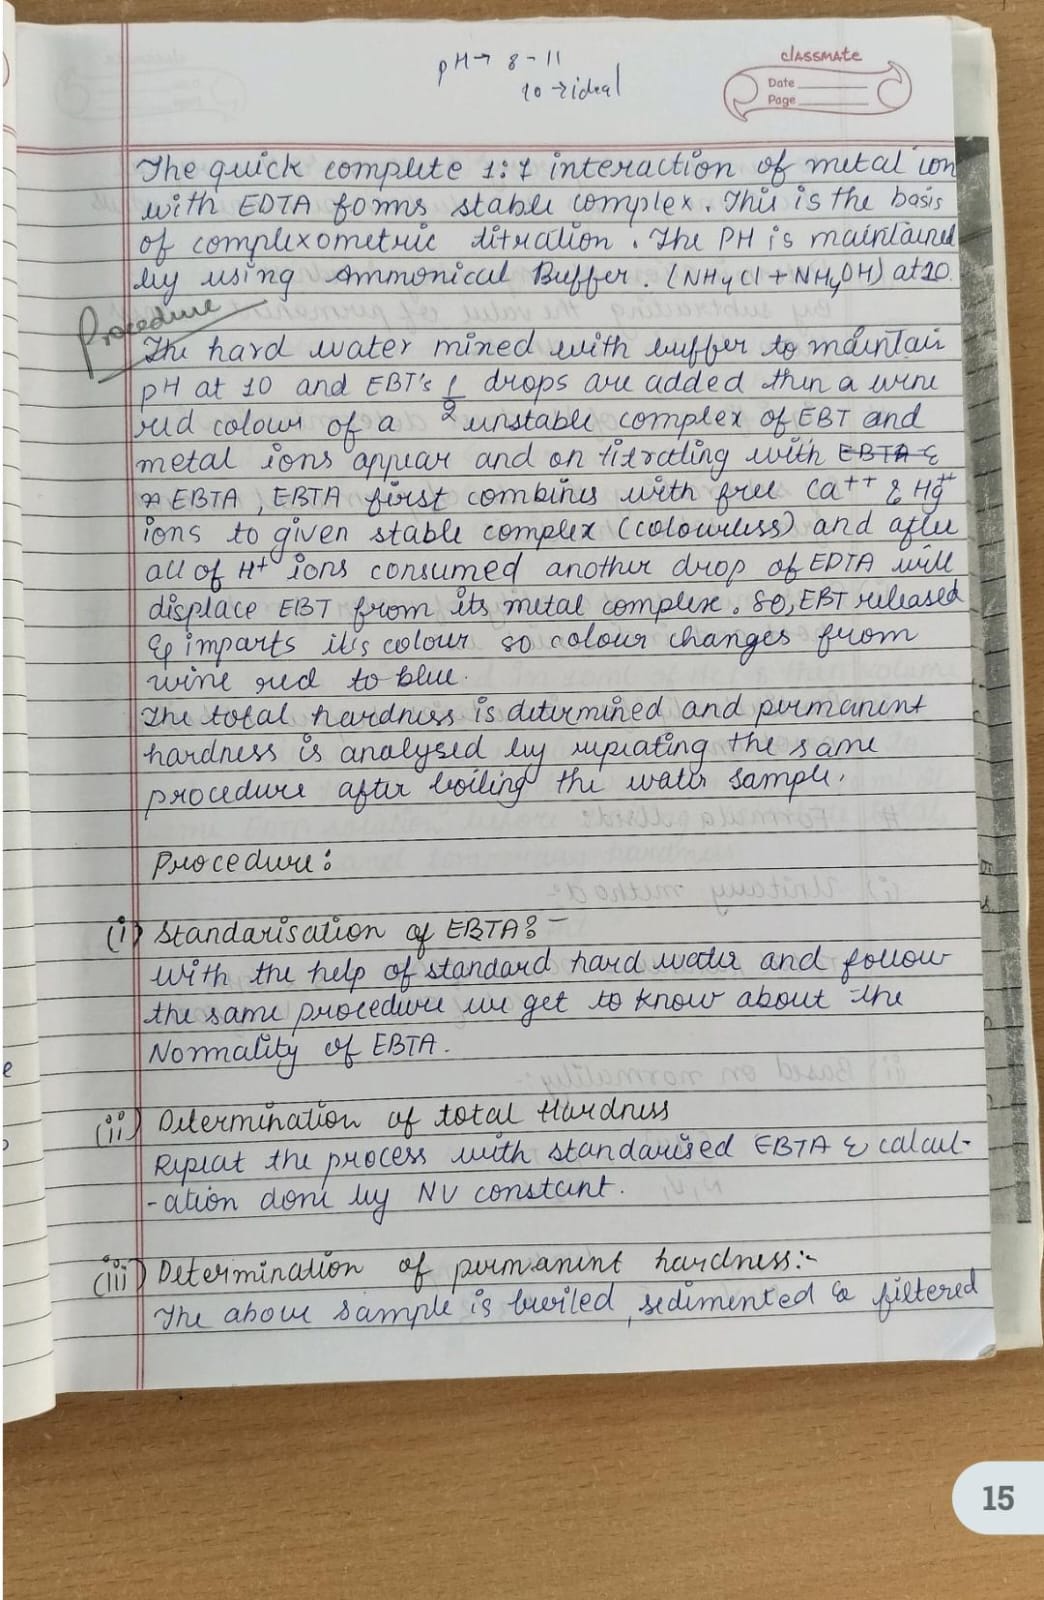 pH → 8 - 11
10 → ideal
classmate
Date
Page
The quick complete 1:1 interaction of metal ion
with EDTA forms stable complex. This is the basis
of complexometric titration. The PH is maintained
by using Ammonical Buffer. (NH4Cl + NH4OH) at 10.
Procedure
The hard water mixed with buffer to maintain
pH at 10 and EBT's 1/2 drops are added then a wine
red colour of a unstable complex of EBT and
metal ions appear and on titrating with EBTA &
EBTA, EBTA first combines with free Ca++ & Hg++
ions to given stable complex (colourless) and after
all of H+ ions consumed another drop of EDTA will
displace EBT from its metal complex. So, EBT released
& imparts it's colour so colour changes from
wine red to blue.
The total hardness is determined and permanent
hardness is analysed by repeating the same
procedure after boiling the water sample.
Procedure:
(i) Standarisation of EBTA:-
with the help of standard hard water and follow
the same procedure we get to know about the
Normality of EBTA.
(ii) Determination of total Hardness
Repeat the process with standarised EBTA & calcul-
-ation done by NV constant.
(iii) Determination of permanent hardness:-
The above sample is bwiled, sedimented & filtered
15